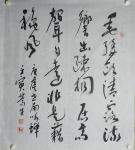 垂緌飲清露流
響出疏桐居高
聲自遠非是藉
秋風 唐虞世南
壬寅